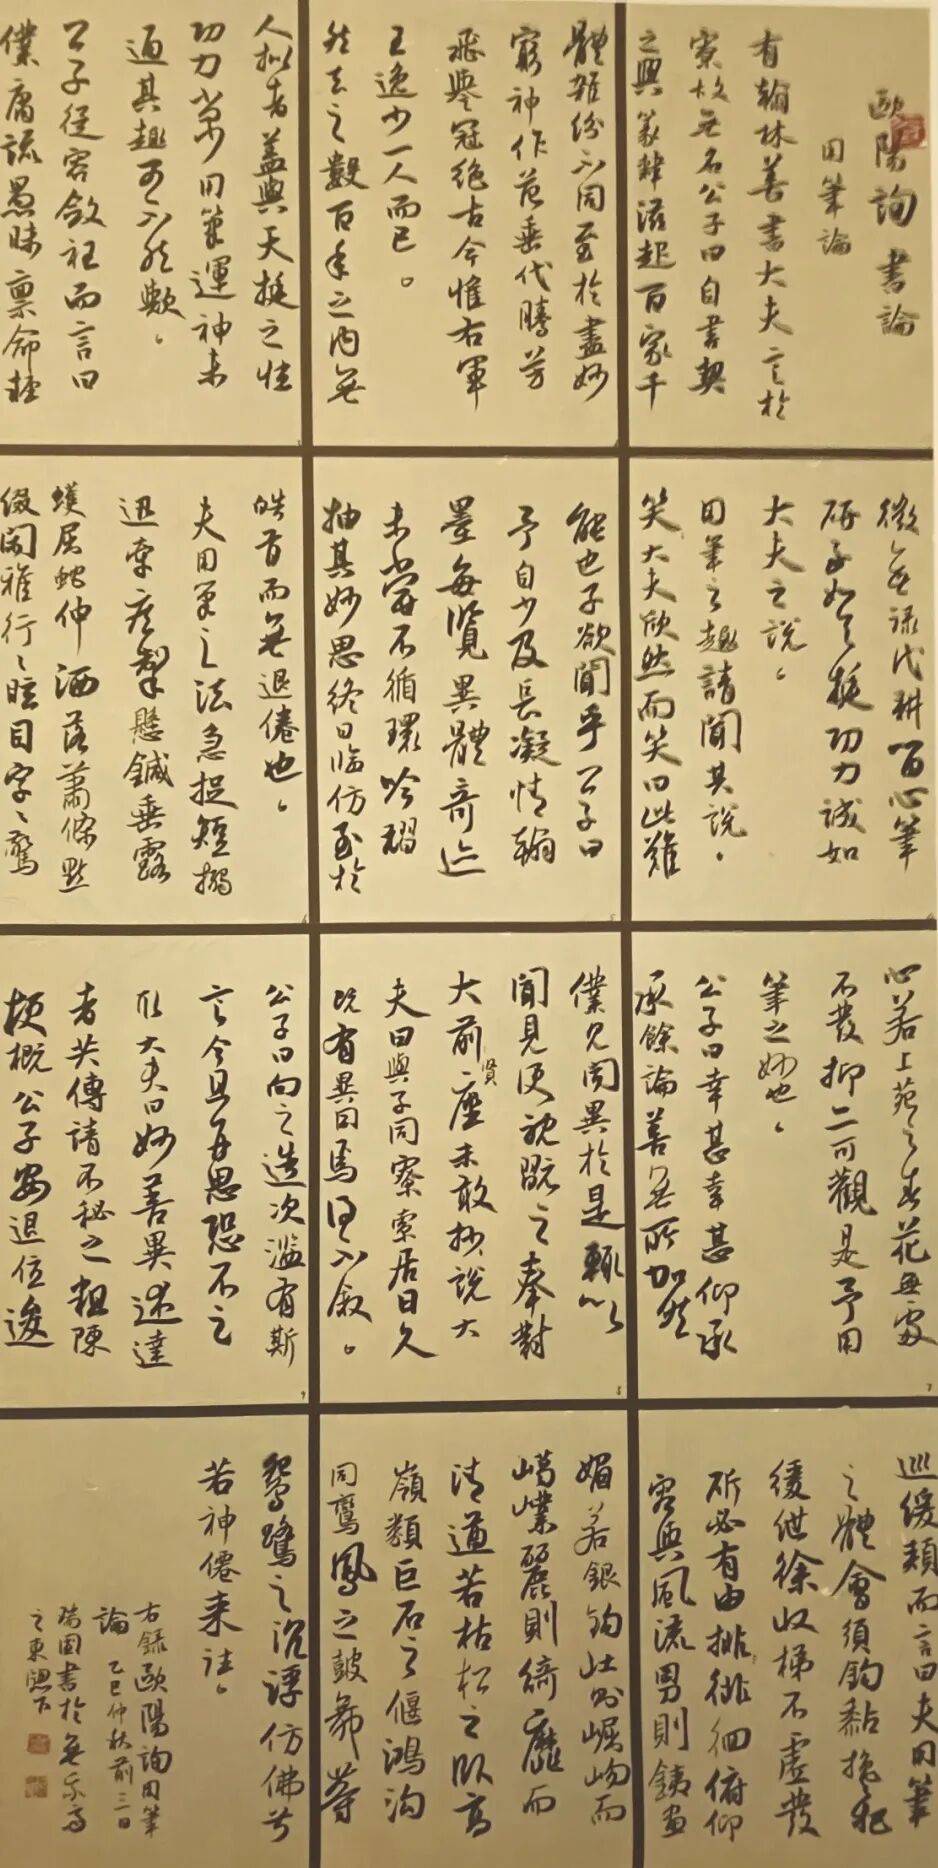 歐陽詢書論
用筆論
有翰林善書大夫言於
寮故無名公子曰自書契
之興篆隸滋起百家千
體雜紛不同至於盡妙
窮神作范垂代騰芳
飛譽冠絕古今惟右軍
王逸少一人而已。
然去之數百年之內無
人擬者蓋與天挺之性
功力尚少用筆運神未
通其趣可不然歟。
公子從容斂衽而言曰
僕庸疏愚昧稟命輕
微無祿代耕留心筆
硯至如天挺功力誠如
大夫之說。
用筆之趣請聞其說。
笑大夫欣然而笑曰此難
能也子欲聞乎公子曰
予自少及長凝情翰
墨每覽異體奇迹
未嘗不循環吟翫
抽其妙思終日臨仿至於
皓首而無退倦也。
夫用筆之法急捉短搦
迅牽疾掣懸鍼垂露
蠖屈蛇伸洒落蕭條點
綴閑雅行〻眩目字〻驚
心若上苑之春花無處
不發抑亦可觀是予用
筆之妙也。
公子曰幸甚幸甚仰承
承餘論善無所加然
僕見聞異於是輒以
聞見便耽翫之奉對
大前賢座未敢抄說大
夫曰與子同寮索居日久
既有異同焉得不敘。
公子曰向之造次濫有斯
言今且再思恐不足
取大夫曰妙善異述達
者共傳請不秘之粗陳
梗概公子安退位逡
巡緩頰而言曰夫用筆
之體會須鉤黏才把
緩紲徐收梯不虛發
斫必有由徘徊俯仰
容與風流男則鐵畫
媚若銀鉤壯則崛吻而
嵽嵲麗則綺靡而
清遒若枯松之臥高
嶺類巨石之偃鴻溝
同鸞鳳之鼓舞等
鴛鷺之沉浮仿佛兮
若神僊來往。
右錄歐陽詢用筆
論 乙巳仲秋前三日
瑞國書於無
之東窗下